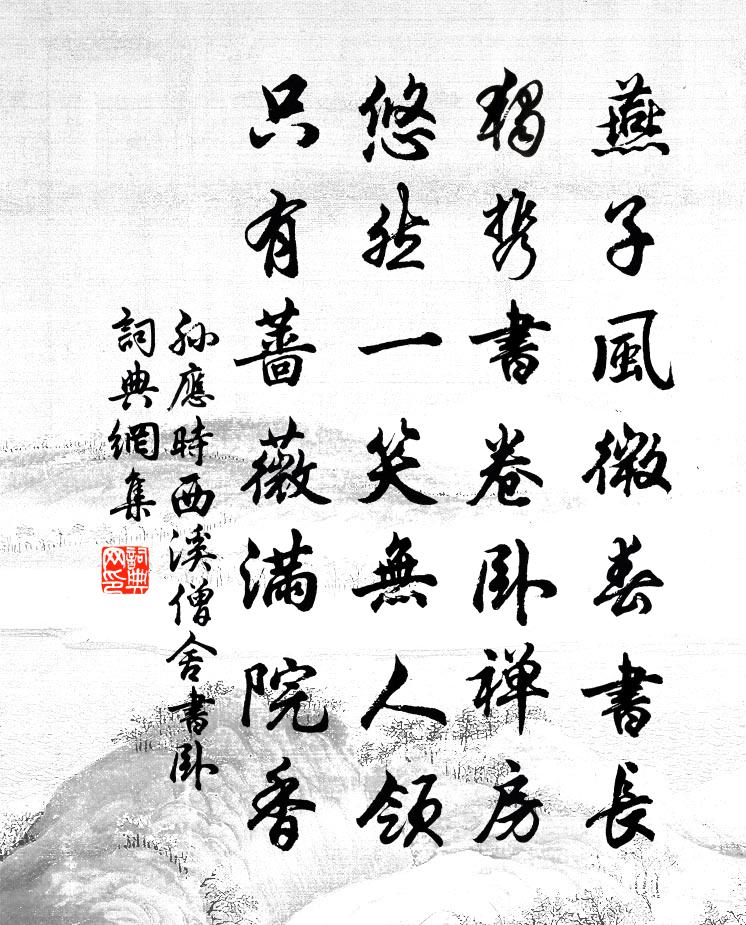 燕子風微春書長
獨携書卷卧禅房
悠然一笑無人領
只有薔薇滿院香
孫應時西溪僧舍書卧
詞典網集
詞典网印